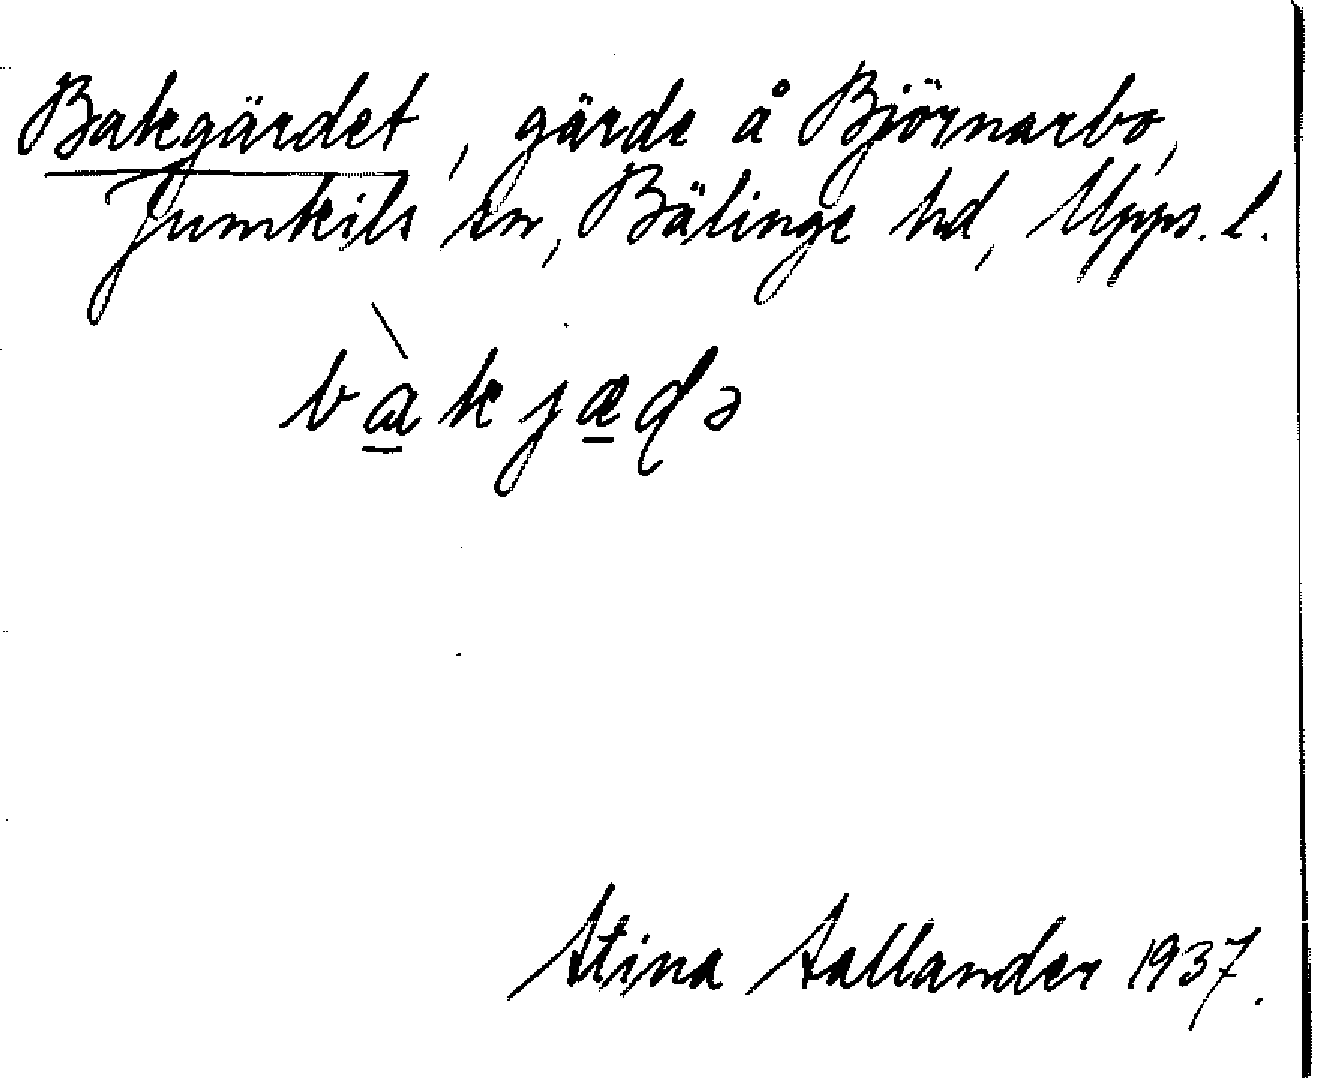 Bakgärdet, gärde å Björnarbo,
Jumkils sn, Bälinge hd, Upps. l.
bàkjæɖə
Stina Sallander 1937.